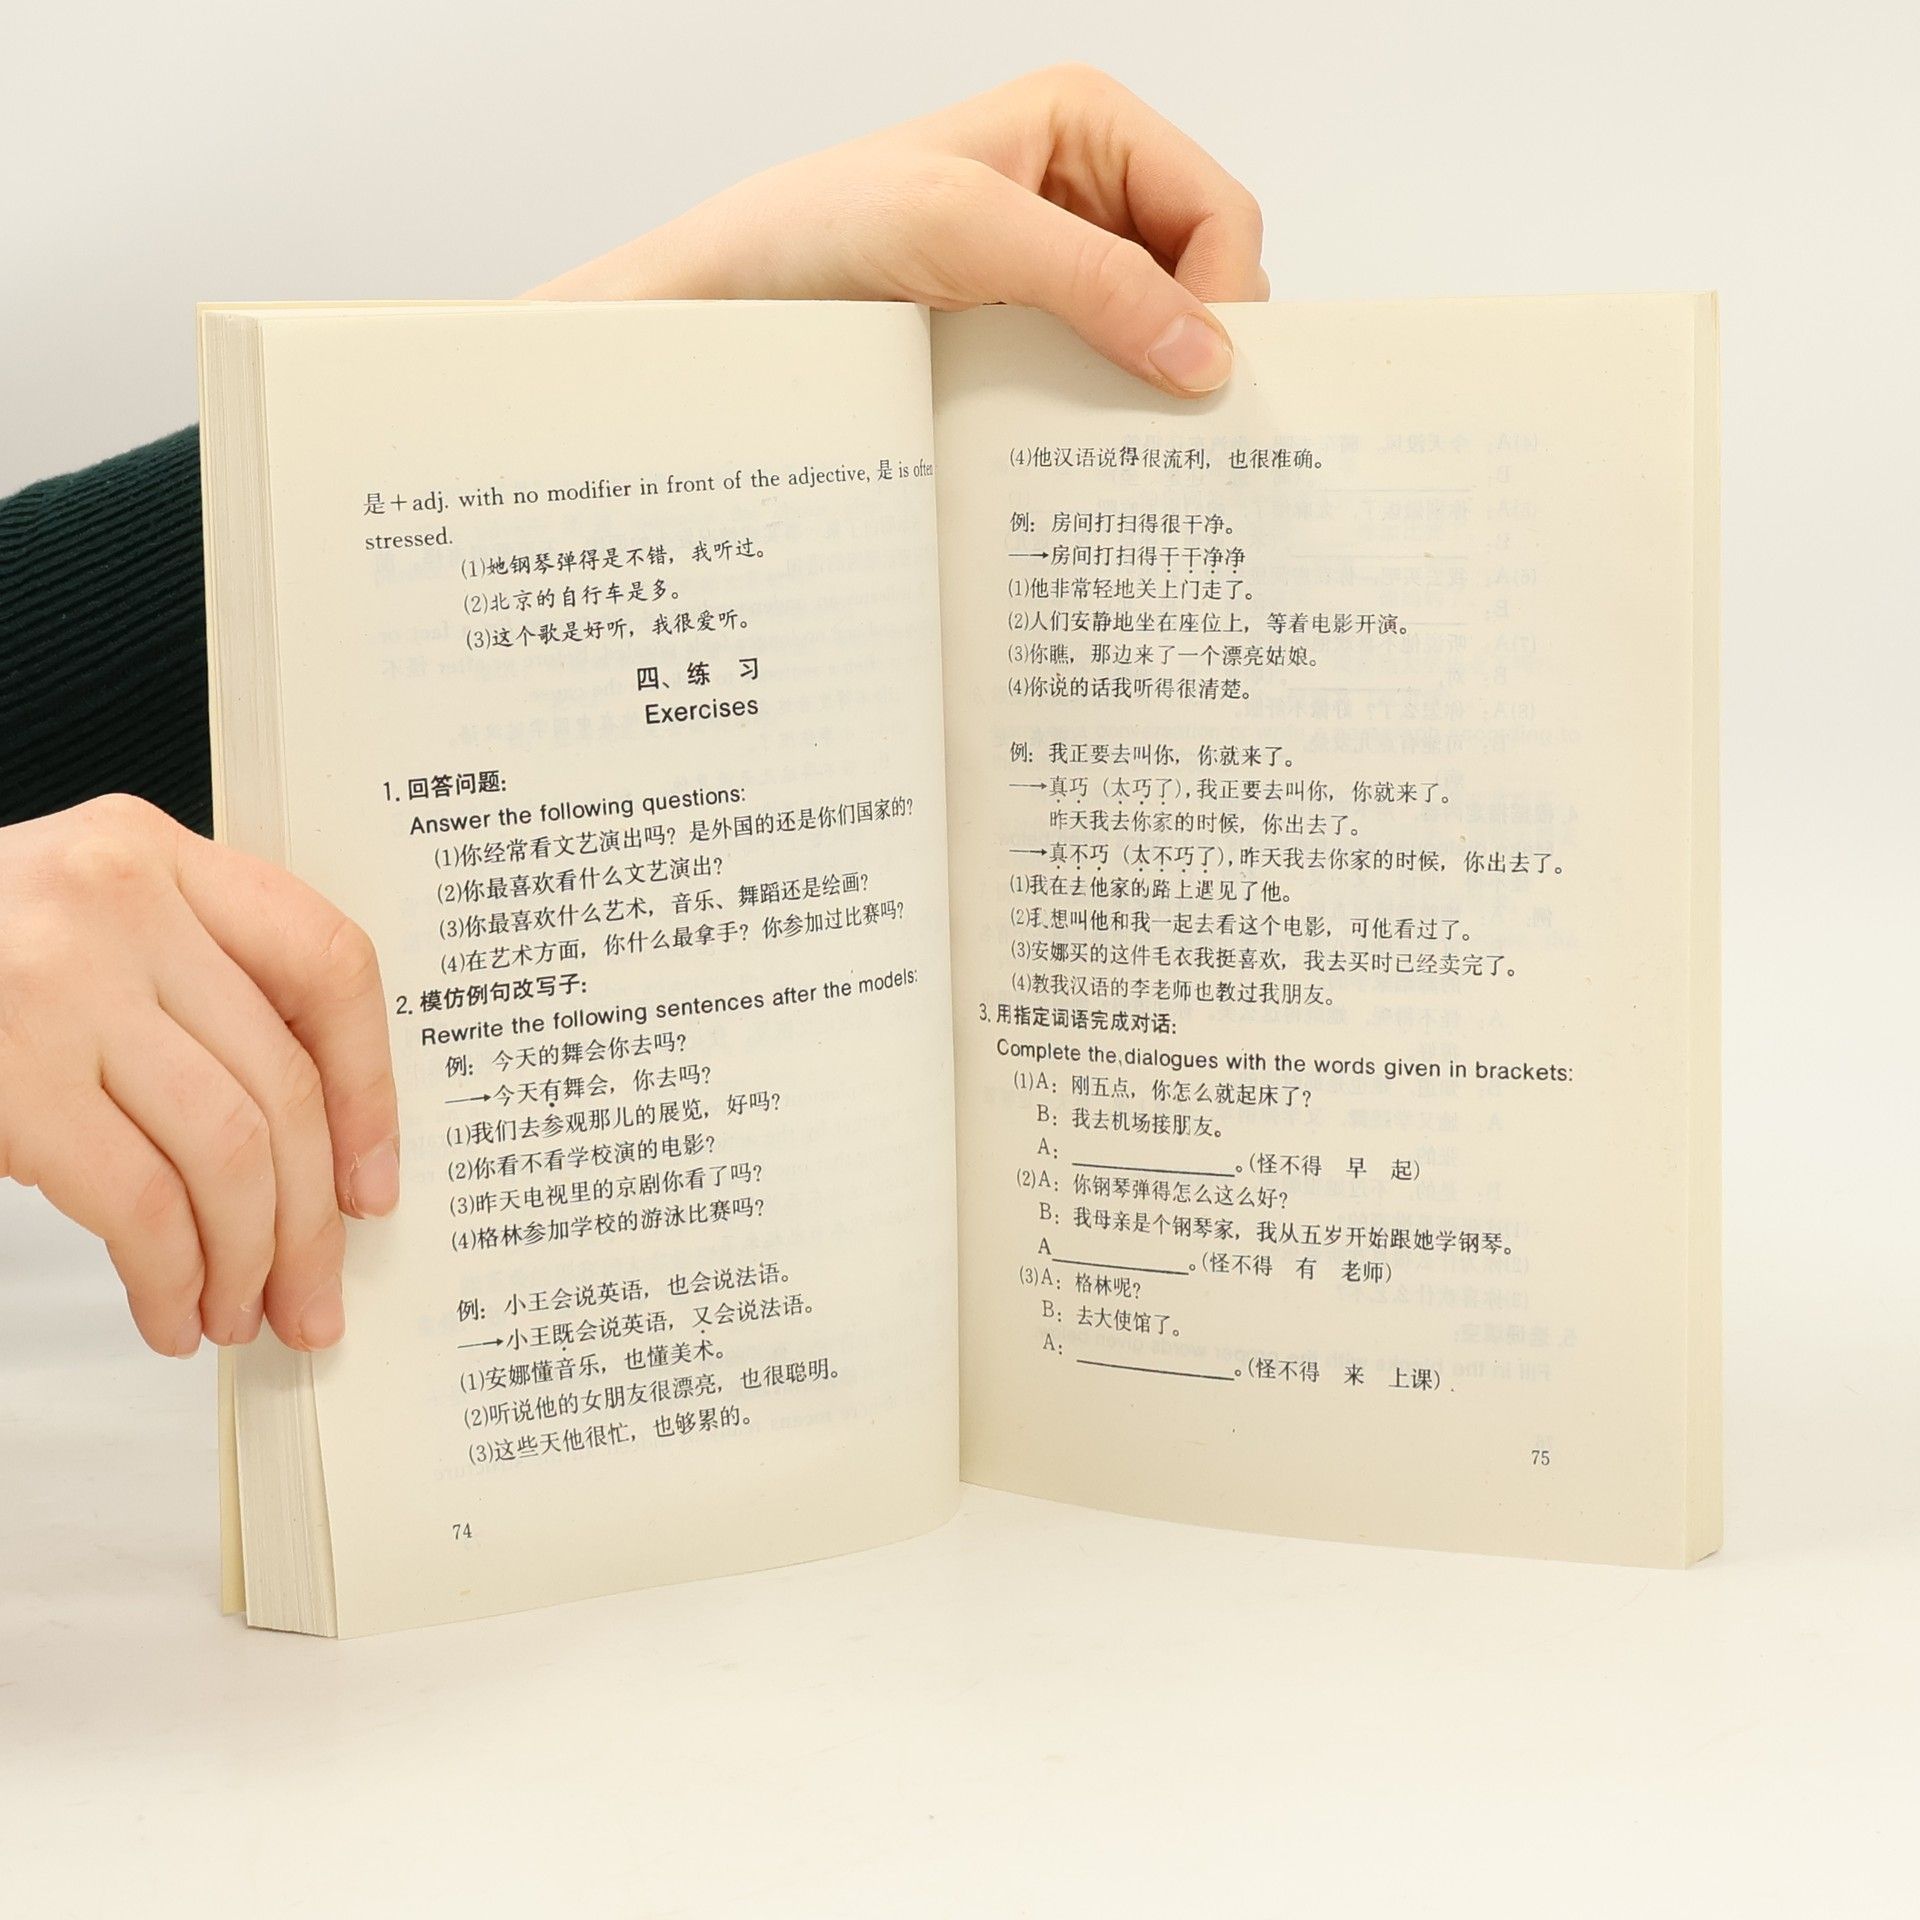 是＋adj. with no modifier in front of the adjective, 是 is often
stressed.
(1)她钢琴弹得是不错，我听过。
(2)北京的自行车是多。
(3)这个歌是好听，我很爱听。
四、练 习
Exercises
1. 回答问题：
Answer the following questions:
(1)你经常看文艺演出吗？是外国的还是你们国家的？
(2)你最喜欢看什么文艺演出？
(3)你最喜欢什么艺术，音乐、舞蹈还是绘画？
(4)在艺术方面，你什么最拿手？你参加过比赛吗？
2. 模仿例句改写子：
Rewrite the following sentences after the models:
例：今天的舞会你去吗？
──→今天有舞会，你去吗？
(1)我们去参观那儿的展览，好吗？
(2)你看不看学校演的电影？
(3)昨天电视里的京剧你看了吗？
(4)格林参加学校的游泳比赛吗？
例：小王会说英语，也会说法语。
──→小王既会说英语，又会说法语。
(1)安娜懂音乐，也懂美术。
(2)听说他的女朋友很漂亮，也很聪明。
(3)这些天他很忙，也够累的。
74
(4)他汉语说得很流利，也很准确。
例：房间打扫得很干净。
──→房间打扫得干干净净
(1)他非常轻地关上门走了。
(2)人们安静地坐在座位上，等着电影开演。
(3)你瞧，那边来了一个漂亮姑娘。
(4)你说的话我听得很清楚。
例：我正要去叫你，你就来了。
──→真巧（太巧了），我正要去叫你，你就来了。
昨天我去你家的时候，你出去了。
──→真不巧（太不巧了），昨天我去你家的时候，你出去了。
(1)我在去他家的路上遇见了他。
(2)我想叫他和我一起去看这个电影，可他看过了。
(3)安娜买的这件毛衣我挺喜欢，我去买时已经卖完了。
(4)教我汉语的李老师也教过我朋友。
3. 用指定词语完成对话：
Complete the dialogues with the words given in brackets:
(1)A：刚五点，你怎么就起床了？
B：我去机场接朋友。
A：____________。(怪不得 早 起)
(2)A：你钢琴弹得怎么这么好？
B：我母亲是个钢琴家，我从五岁开始跟她学钢琴。
A____________。(怪不得 有 老师)
(3)A：格林呢？
B：去大使馆了。
A：____________。(怪不得 来 上课)
75